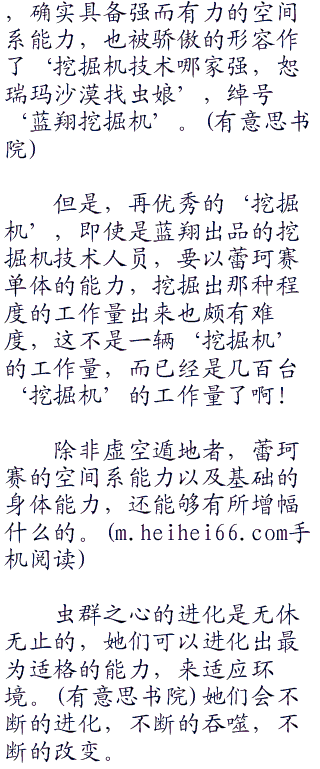 ，确实具备强而有力的空间
系能力，也被骄傲的形容作
了‘挖掘机技术哪家强，恕
瑞玛沙漠找虫娘’，绰号
‘蓝翔挖掘机’。(有意思书
院)
但是，再优秀的‘挖掘
机’，即使是蓝翔出品的挖
掘机技术人员，要以蕾珂赛
单体的能力，挖掘出那种程
度的工作量出来也颇有难
度，这不是一辆‘挖掘机’
的工作量，而已经是几百台
‘挖掘机’的工作量了啊！
除非虚空遁地者，蕾珂
赛的空间系能力以及基础的
身体能力，还能够有所增幅
什么的。(m.heihei66.com手
机阅读)
虫群之心的进化是无休
无止的，她们可以进化出最
为适格的能力，来适应环
境。(有意思书院)她们会不
断的进化，不断的吞噬，不
断的改变。